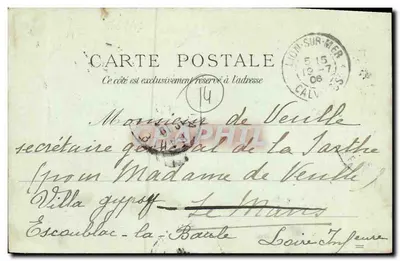 CARTE POSTALE
Ce côté est exclusivement réservé à l'adresse
LION-SUR-MER
5 15
15 -7
06
CALVADOS
14
Monsieur de Ventte
secrétaire général de la Sarthe
(pour Madame de Ventte)
Villa gypsy Le Mans
Escoublac-la-Baule Loire Infeure